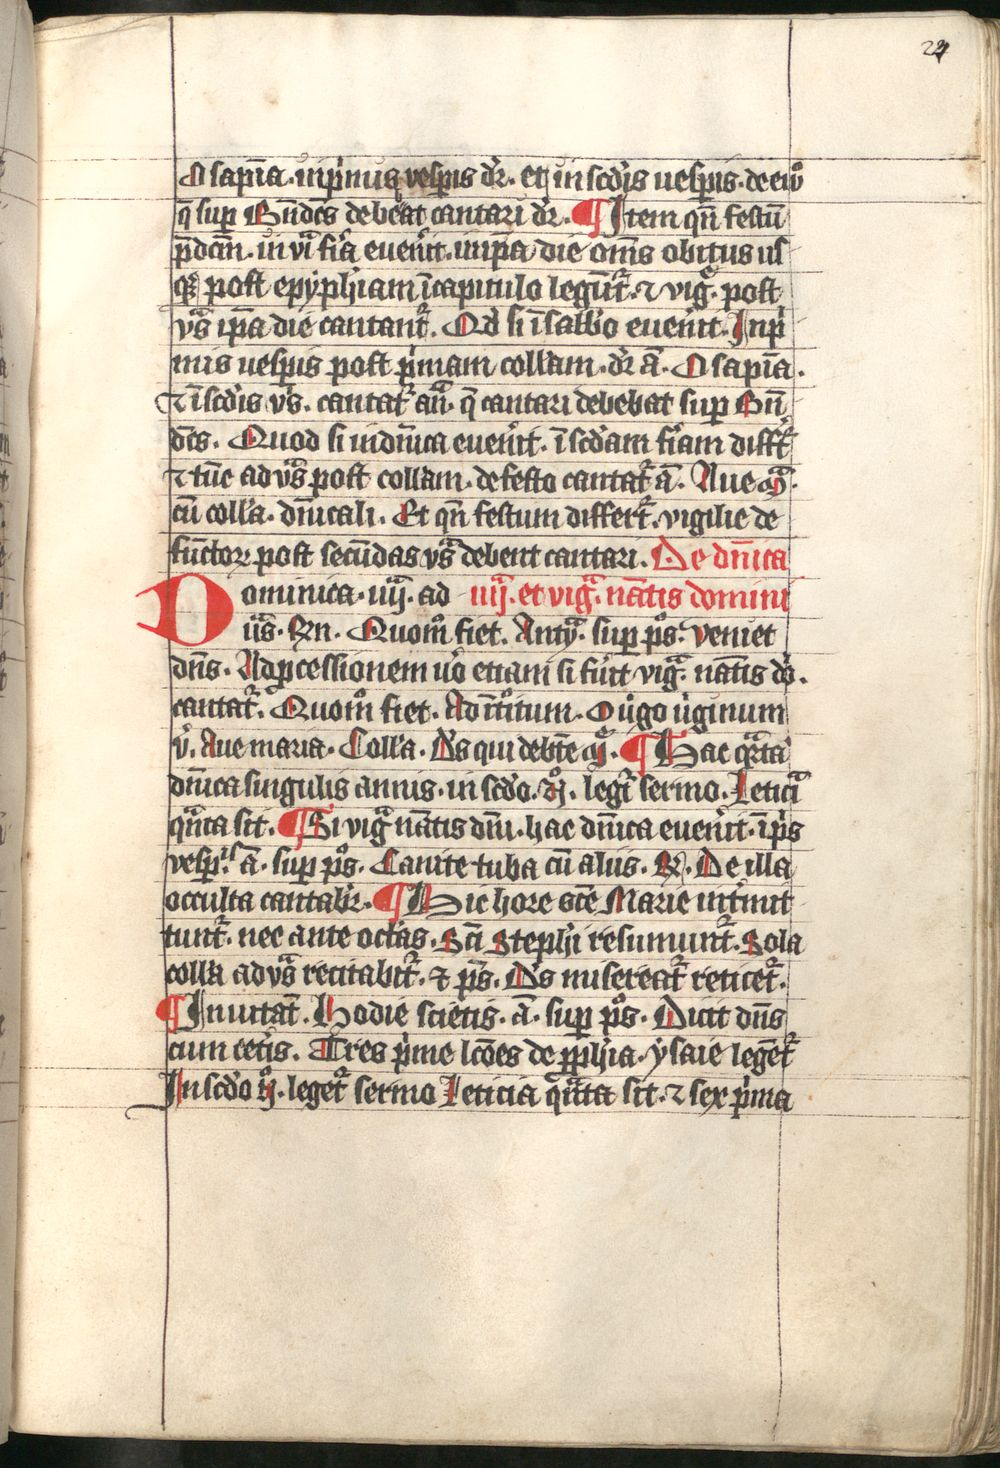 22
O sapīa. in p̄mis vesp̄is dr̄. et in scd̄is uesp̄is. de eiꝰ
q̄ sup Bn̄dēs debeat cantari dr̄. ¶ Item qn̄ festū
p̄dc̄m. in vi fīa euen̄it. in ip̄a die om̄s obitus us
qꝫ post epyph̄iam ī capitulo legūt̄. ⁊ vigͣ. post
vs̄ ip̄a die cantant̄. Qd̄ si ī sabb̄o euen̄it. In p̄
mis uesp̄is post p̄mam coll̄am. dr̄ ā. O sapīa.
⁊ ī scd̄is vs̄. cantat̄ an̄ q̄ cantari debebat sup Bn̄
dēs. Quod si in dn̄ica euen̄it. ī scd̄am fīam diff̄t̄
⁊ tūc ad vs̄ post coll̄am. de festo cantat̄ ā. Aue gͣ.
cū coll̄a. dn̄icali. Et qn̄ festum differt̄. vigilie de
fūctoꝝ post secūdas vs̄ debent cantari. De dn̄ica
Dominica. iiij. ad iiij. et vigͣ. nāt̄is domini
us̄. Rn̄. Quom̊ fiet. Antyͣ. sup p̄s. Veniet
dn̄s. Ad ꝓcessionem uō etiam si fūit vigͣ. nāt̄is do̅.
cantat̄. Quom̊ fiet. Ad īt̊itum. O ūgo ūginum
v̄. Aue maria. Coll̄a. Ds̄ qui de bt̄e mͣ. ¶ Hac qͣrta
dn̄ica singulis annis. in scd̄o. n̊. legt̄ sermo. Leticiͣ
qͣnta sit. ¶ Si vigͣ nāt̄is dn̄i. hac dn̄ica euen̄it. ī p̄s
vesp̄is ā. sup p̄s. Canite tuba cū aliis. ℟. De illa
occulta cantabr̄. ¶ Hic hore scē Marie int̄mit
tunt̄. nec ante oct̄as. Sc̄i Steph̄i resumunt̄. Sola
coll̄a ad vs̄ recitabit̄. ⁊ p̄s. Ds̄ misereat̄ reticet̄.
¶ Inuitat̄. Hodie scietis. ā. sup p̄s. Dicit dn̄s
cum cet̄is. Tres p̄me lc̄ōes de ꝓph̄ia. ysaie leget̄
In scd̄o n̊. leget̄ sermo Leticia qͣnta sit. ⁊ sex p̄ma